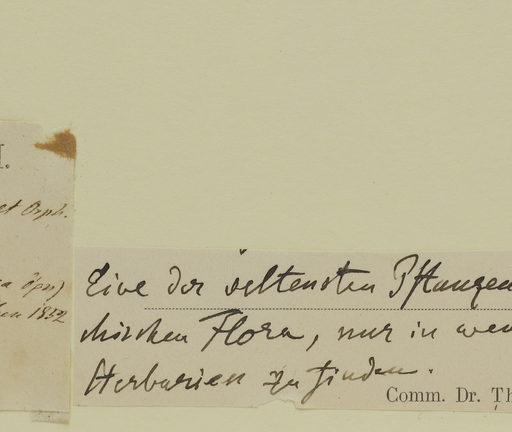 I.
et Orph.
1852
Eine der seltensten Pflanzen
chischen Flora, nur in wen
Herbarien zu finden.
Comm. Dr. Th